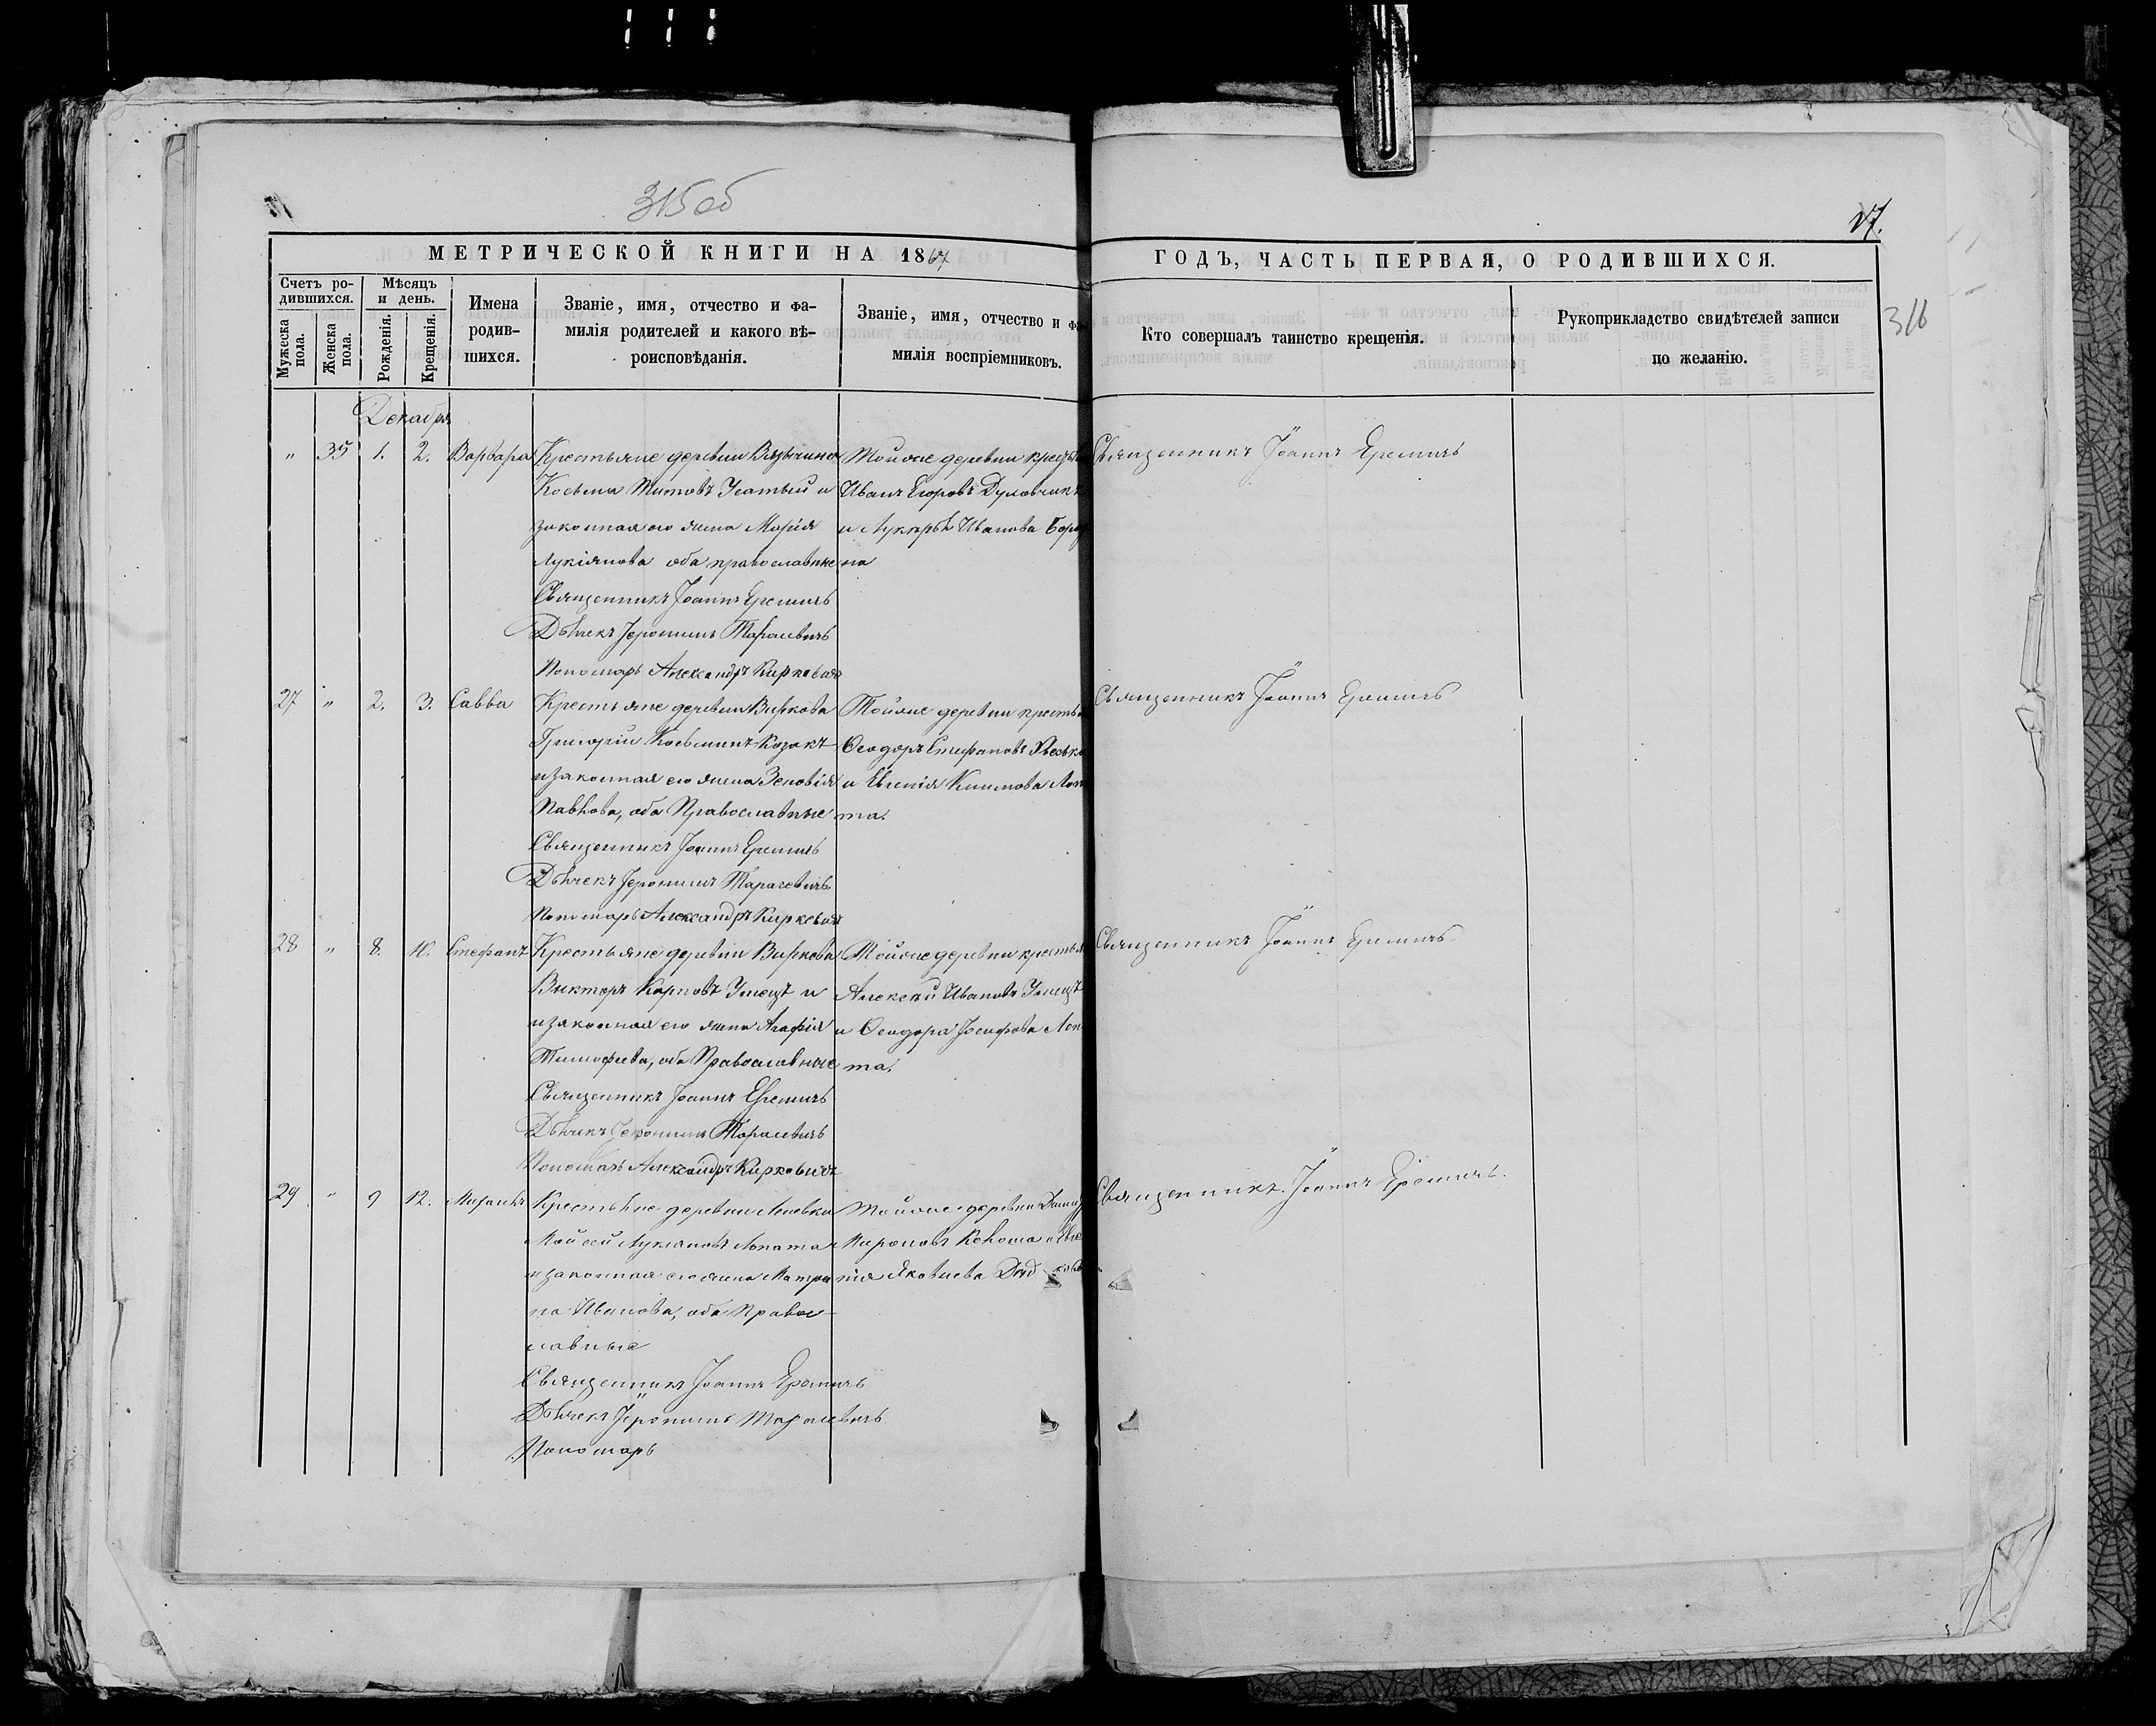 315об
17.
316
МЕТРИЧЕСКОЙ КНИГИ НА 1867
ГОДЪ, ЧАСТЬ ПЕРВАЯ, О РОДИВШИХСЯ.
Счетъ ро-
дившихся.
Мужеска
пола.
Женска
пола.
Мѣсяцъ
и день.
Рожденія.
Крещенія.
Имена
родив-
шихся.
Званіе, имя, отчество и фа-
милія родителей и какого вѣ-
роисповѣданія.
Званіе, имя, отчество и фа
милія воспріемниковъ.
Кто совершалъ таинство крещенія.
Рукоприкладство свидѣтелей записи
по желанію.
Декабря
" 35 1. 2. Варвара
Крестьяне деревни
Косьма Титовъ Усатый и
законная его жена Марія
Лукіянова оба православные
Священникъ Іоаннъ Еремичъ
Дьячекъ Іеронимъ Тарасевичъ
Пономарь Александръ Киркевичъ
Тойже деревни кресть
Иванъ Егоровъ
и Иванова
на
Священникъ Іоаннъ Еремичъ
27 " 2. 3. Савва
Крестьяне деревни Виркова
Григорій Косьминъ Козакъ
и законная его жена Зеновія
Павлова, оба Православные
Священникъ Іоаннъ Еремичъ
Дьячекъ Іеронимъ Тарасевичъ
Пономарь Александръ Киркевичъ
Тойже деревни кресть
Ѳеодоръ Стефановъ
и Евгенія Климова Лопа
та.
Священникъ Іоаннъ Еремичъ
28 " 8. 10. Стефанъ
Крестьяне деревни Виркова
Викторъ Карповъ и
и законная его жена Агафія
Тимофеева, оба Православные
Священникъ Іоаннъ Еремичъ
Дьячекъ Іеронимъ Тарасевичъ
Пономарь Александръ Киркевичъ
Тойже деревни крестья
Алексѣй Ивановъ
и Ѳеодора Іосифова Лопа
та.
Священникъ Іоаннъ Еремичъ
29 " 9 12.
Крестьяне деревни
Мойсей Лукіановъ Лопата
и законная его жена Матро
на Иванова, оба Правос-
лавные
Священникъ Іоаннъ Еремичъ
Дьячекъ Іеронимъ Тарасевичъ
Пономарь
Тойже деревни
Мироновъ
нія Яковлева
Священникъ Іоаннъ Еремичъ.